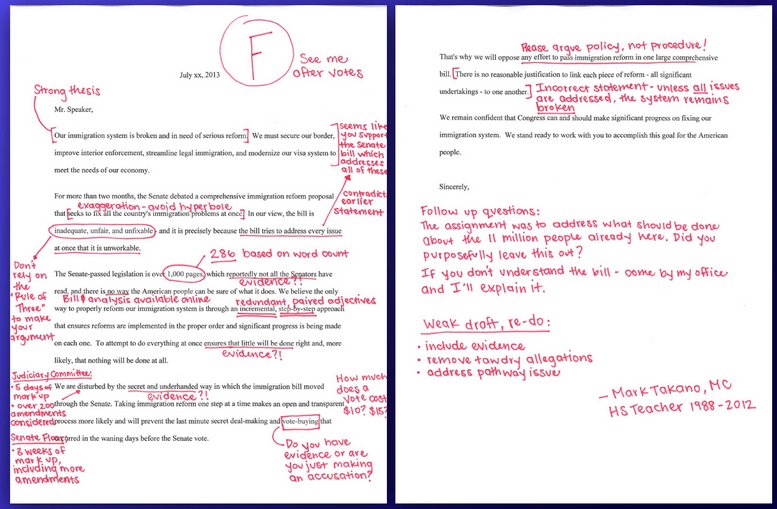 F
See me
after votes
July xx, 2013
Strong thesis
Mr. Speaker,
[Our immigration system is broken and in need of serious reform.] We must secure our border,
improve interior enforcement, streamline legal immigration, and modernize our visa system to
meet the needs of our economy.
seems like
you support
the Senate
bill which
addresses
all of these
For more than two months, the Senate debated a comprehensive immigration reform proposal
exaggeration - avoid hyperbole
that [seeks to fix all the country's immigration problems at once.] In our view, the bill is
inadequate, unfair, and unfixable - and it is precisely because the bill tries to address every issue
at once that it is unworkable.
contradicts
earlier
statement
Don't
rely on
the
"Rule of
Three"
to make
your
argument
286 based on word count
The Senate-passed legislation is over 1,000 pages, which reportedly not all the Senators have
evidence?!
read, and there is no way the American people can be sure of what it does. We believe the only
Bill & analysis available online
redundant, paired adjectives
way to properly reform our immigration system is through an incremental, step-by-step approach
that ensures reforms are implemented in the proper order and significant progress is being made
on each one. To attempt to do everything at once ensures that little will be done right and, more
evidence?!
likely, that nothing will be done at all.
Judiciary Committee:
• 5 days of
mark up
• over 200
amendments
considered
Senate Floor:
• 3 weeks of
mark up,
including more
amendments
We are disturbed by the secret and underhanded way in which the immigration bill moved
evidence?!
through the Senate. Taking immigration reform one step at a time makes an open and transparent
process more likely and will prevent the last minute secret deal-making and vote-buying that
occurred in the waning days before the Senate vote.
How much
does a
Vote cost
$10? $15?
Do you have
evidence or are
you just making
an accusation?
Please argue policy, not procedure!
That's why we will oppose any effort to pass immigration reform in one large comprehensive
bill. [There is no reasonable justification to link each piece of reform - all significant
undertakings - to one another.]
Incorrect statement - unless all issues
are addressed, the system remains
broken
We remain confident that Congress can and should make significant progress on fixing our
immigration system. We stand ready to work with you to accomplish this goal for the American
people.
Sincerely,
Follow up questions:
The assignment was to address what should be done
about the 11 million people already here. Did you
purposefully leave this out?
If you don't understand the bill - come by my office
and I'll explain it.
Weak draft, re-do:
• include evidence
• remove tawdry allegations
• address pathway issue
- Mark Takano, MC
HS Teacher 1988-2012